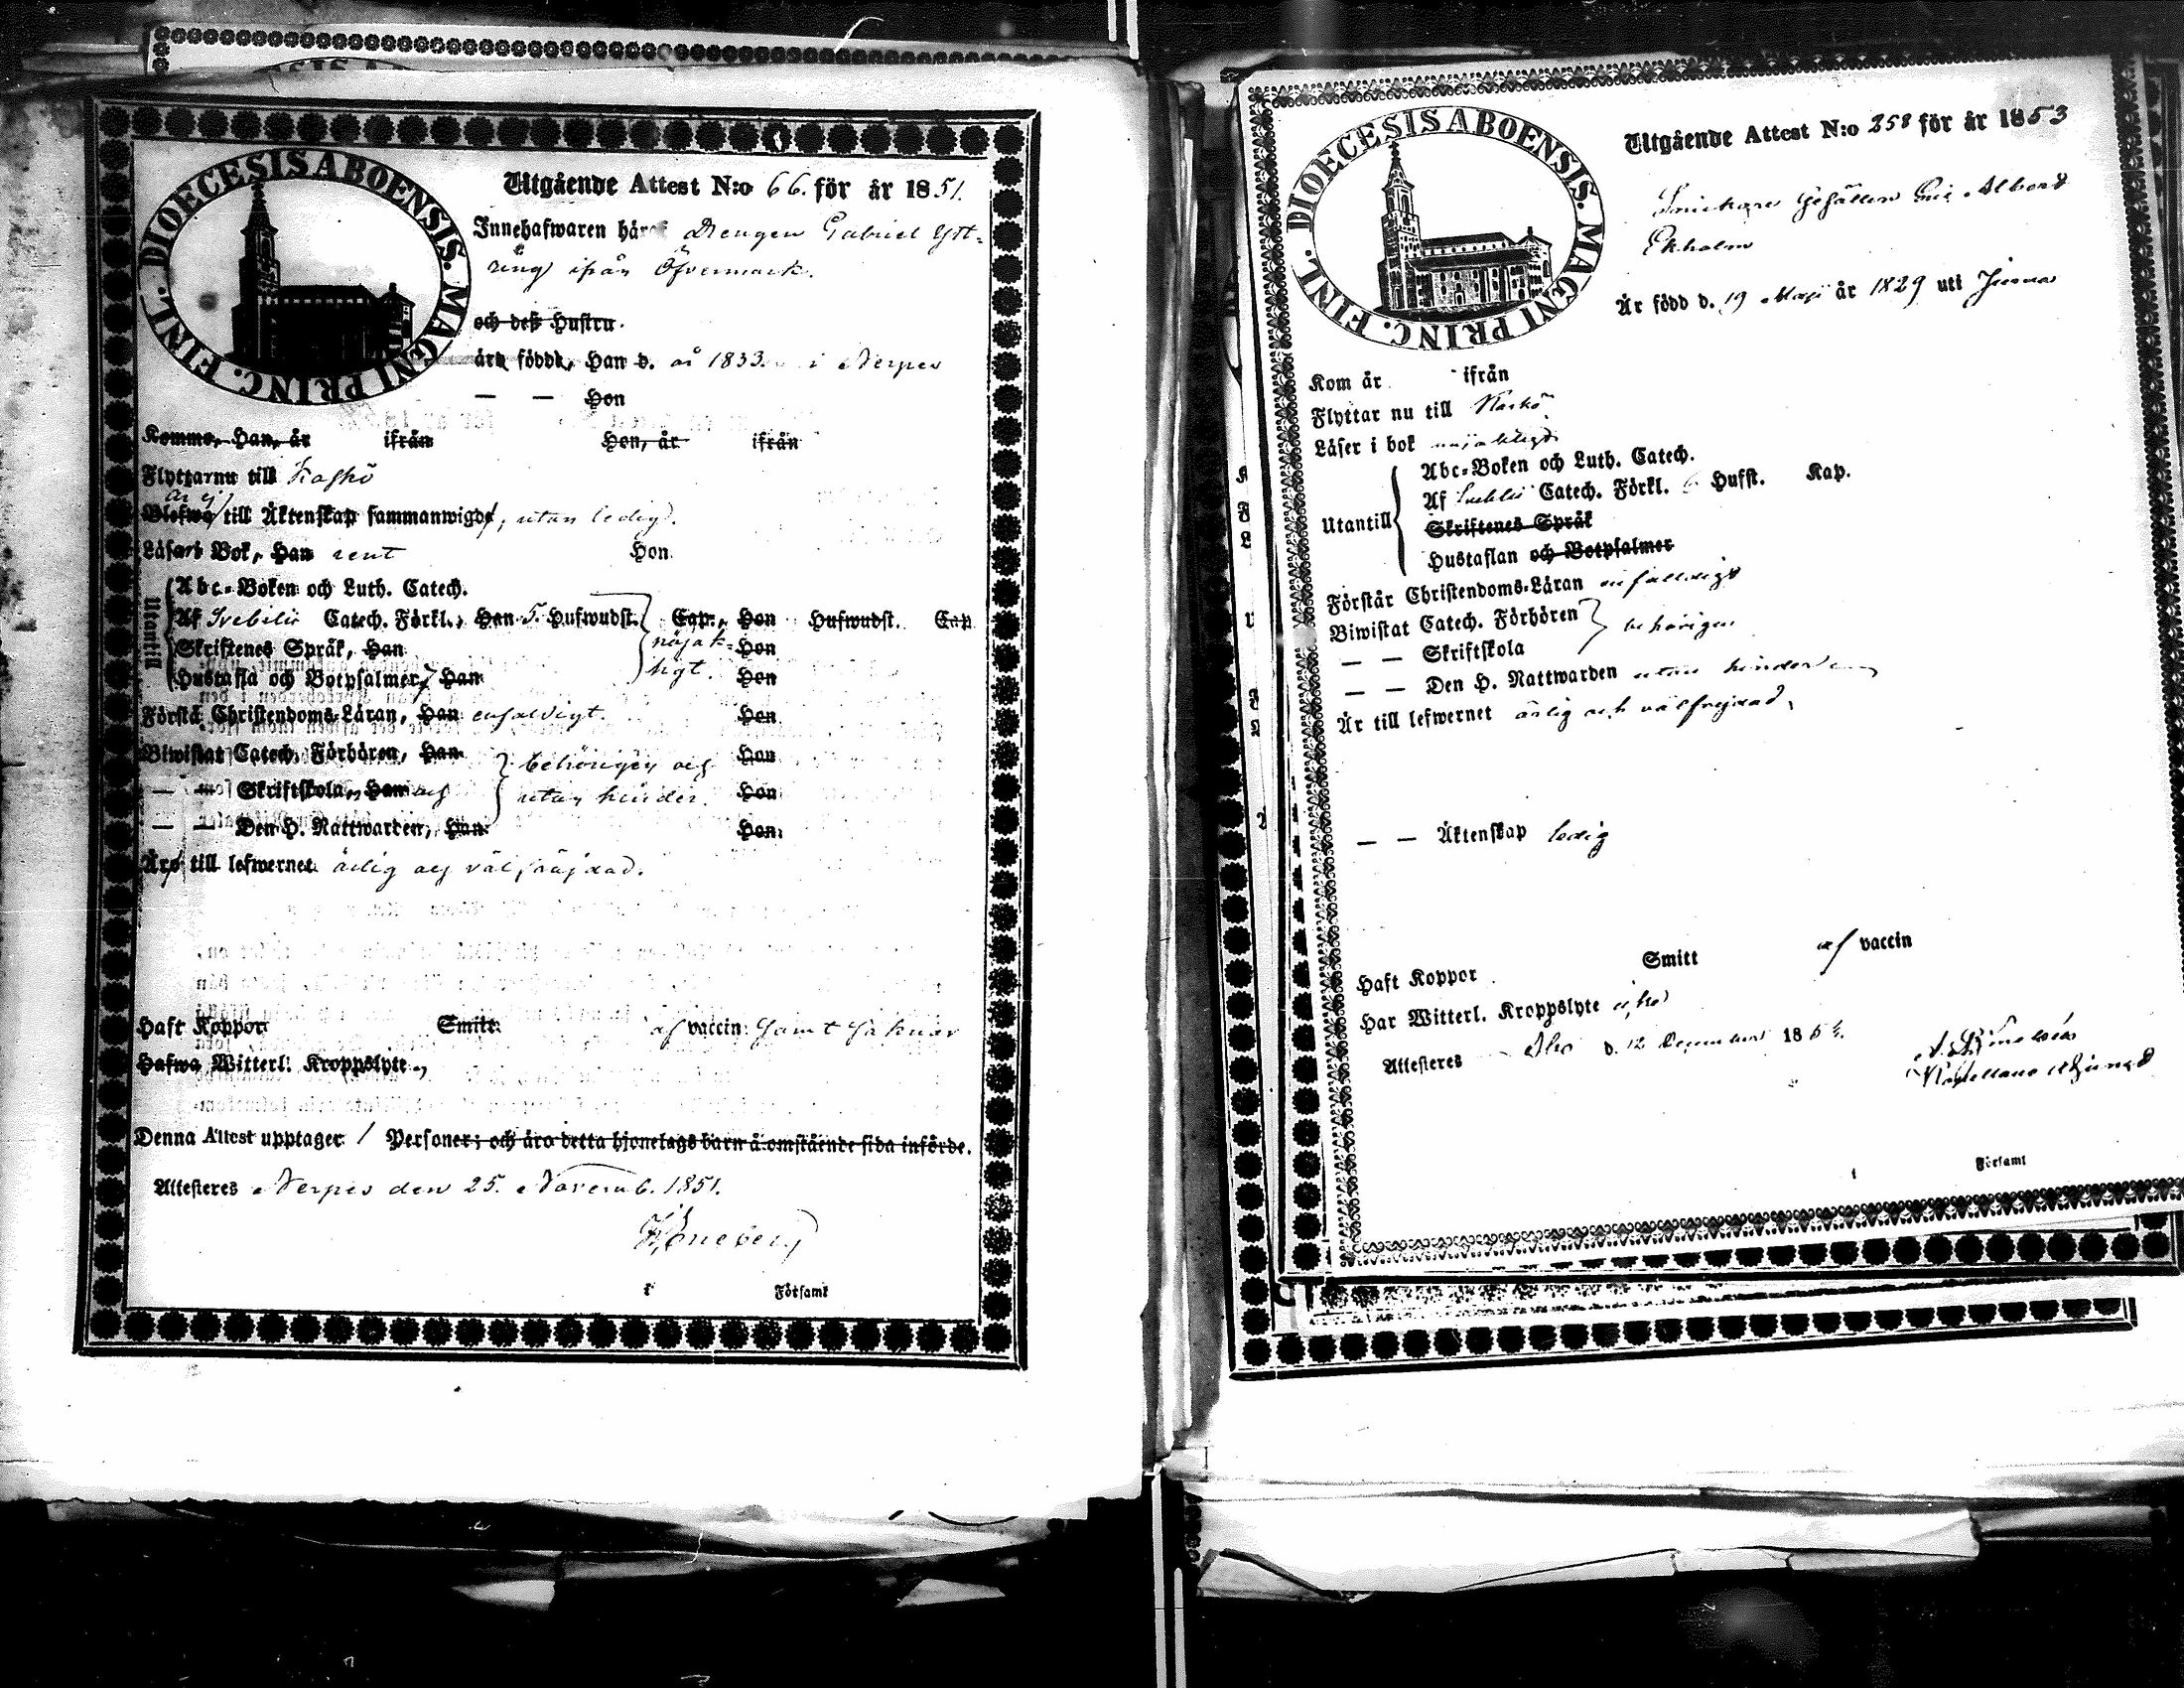 DIOECESIS ABOENSIS. MAGNI PRINC. FINL.
Utgående Attest N:o 66. för år 1851.
Innehafwaren häraf Drengen Gabriel Ytt-
ring ifrån Öfvermark.
och deß Hustru
äro födde, Han d. år 1833. i Nerpes
— — Hon
Komme, Han, år ifrån Hon, år ifrån
Flyttarnu till Kaskö
är ej
Blefwa till Äktenskap sammanwigde, utan ledig.
Läsa i Bok, Han rent Hon
Utantill
Abc-Boken och Luth. Catech.
Af Svebilii Catech. Förkl., Han 5. Hufwudst. Cap., Hon Hufwudst. Cap
Skriftenes Språk, Han nöjak- Hon
Hustafla och Botpsalmer, Han ligt. Hon
Förstå Christendoms-Läran, Han enfaldigt. Hon
Biwistat Catech. Förhören, Han behörigen och Hon
— — Skriftskola, Han och utan hinder. Hon
— — Den H. Nattwarden, Han Hon
Äro till lefwernet ärlig och välfräjdad.
Haft Koppor Smitt. af vaccin samt saknar
Hafwa Witterl. Kroppslyte.
Denna Attest upptager 1 Personer; och äro detta hjonelags barn å omstående sida införde.
Attesteres Nerpes den 25. Novemb. 1851.
Församl
DIOECESIS ABOENSIS. MAGNI PRINC. FINL.
Utgående Attest N:o 258 för år 1853
Snickare Gesällen Eric Albert
Ekholm
Är född d. 19 Maji år 1829 uti
Kom år ifrån
Flyttar nu till Kaskö
Läser i bok nöjaktigt
Utantill
Abc-Boken och Luth. Catech.
Af Svebilii Catech. Förkl. 6 Hufst. Kap.
Skriftenes Språk
Hustaflan och Botpsalmer
Förstår Christendoms-Läran enfaldigt
Biwistat Catech. Förhören behörigen
— — Skriftskola
— — Den H. Nattwarden utan hinder
Är till lefwernet ärlig och välfrejdad,
— — Äktenskap ledig
Haft Koppor Smitt af vaccin
Har Witterl. Kroppslyte icke
Attesteres Åbo d. 12 December 185
Församl